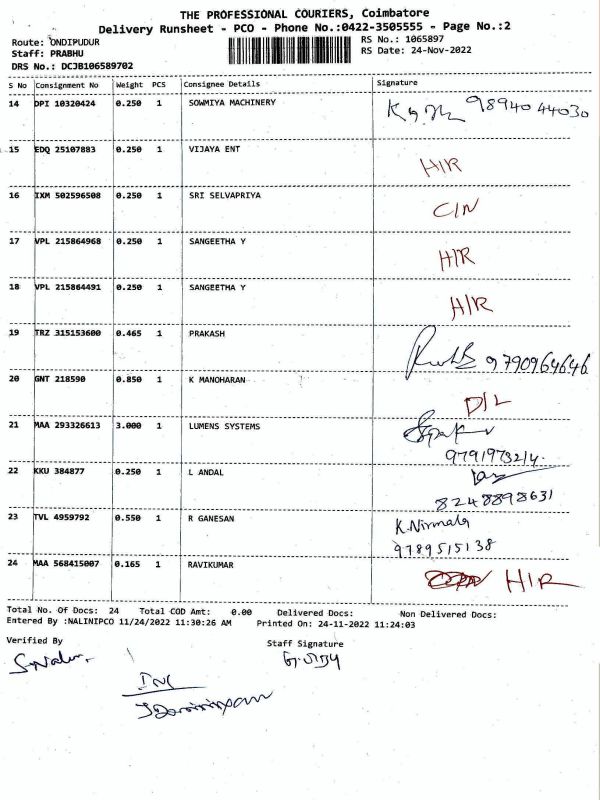 THE PROFESSIONAL COURIERS, Coimbatore
Delivery Runsheet - PCO - Phone No.:0422-3505555 - Page No.:2
Route: ONDIPUDUR
RS No.: 1065897
Staff: PRABHU
RS Date: 24-Nov-2022
DRS No.: DCJB106589702
S No Consignment No Weight PCS Consignee Details Signature
14 DPI 10320424 0.250 1 SOWMIYA MACHINERY 9894044030
15 EDQ 25107883 0.250 1 VIJAYA ENT H/R
16 IXM 502596508 0.250 1 SRI SELVAPRIYA C/N
17 VPL 215864968 0.250 1 SANGEETHA Y H/R
18 VPL 215864491 0.250 1 SANGEETHA Y H/R
19 TRZ 315153600 0.465 1 PRAKASH 9790964646
20 GNT 218590 0.850 1 K MANOHARAN D/L
21 MAA 293326613 3.000 1 LUMENS SYSTEMS
9791973214.
22 KKU 384877 0.250 1 L ANDAL
8248898631
23 TVL 4959792 0.550 1 R GANESAN K.Nirmala
9789515138
24 MAA 568415007 0.165 1 RAVIKUMAR H/R
Total No. Of Docs: 24 Total COD Amt: 0.00 Delivered Docs: Non Delivered Docs:
Entered By :NALINIPCO 11/24/2022 11:30:26 AM Printed On: 24-11-2022 11:24:03
Verified By
Staff Signature